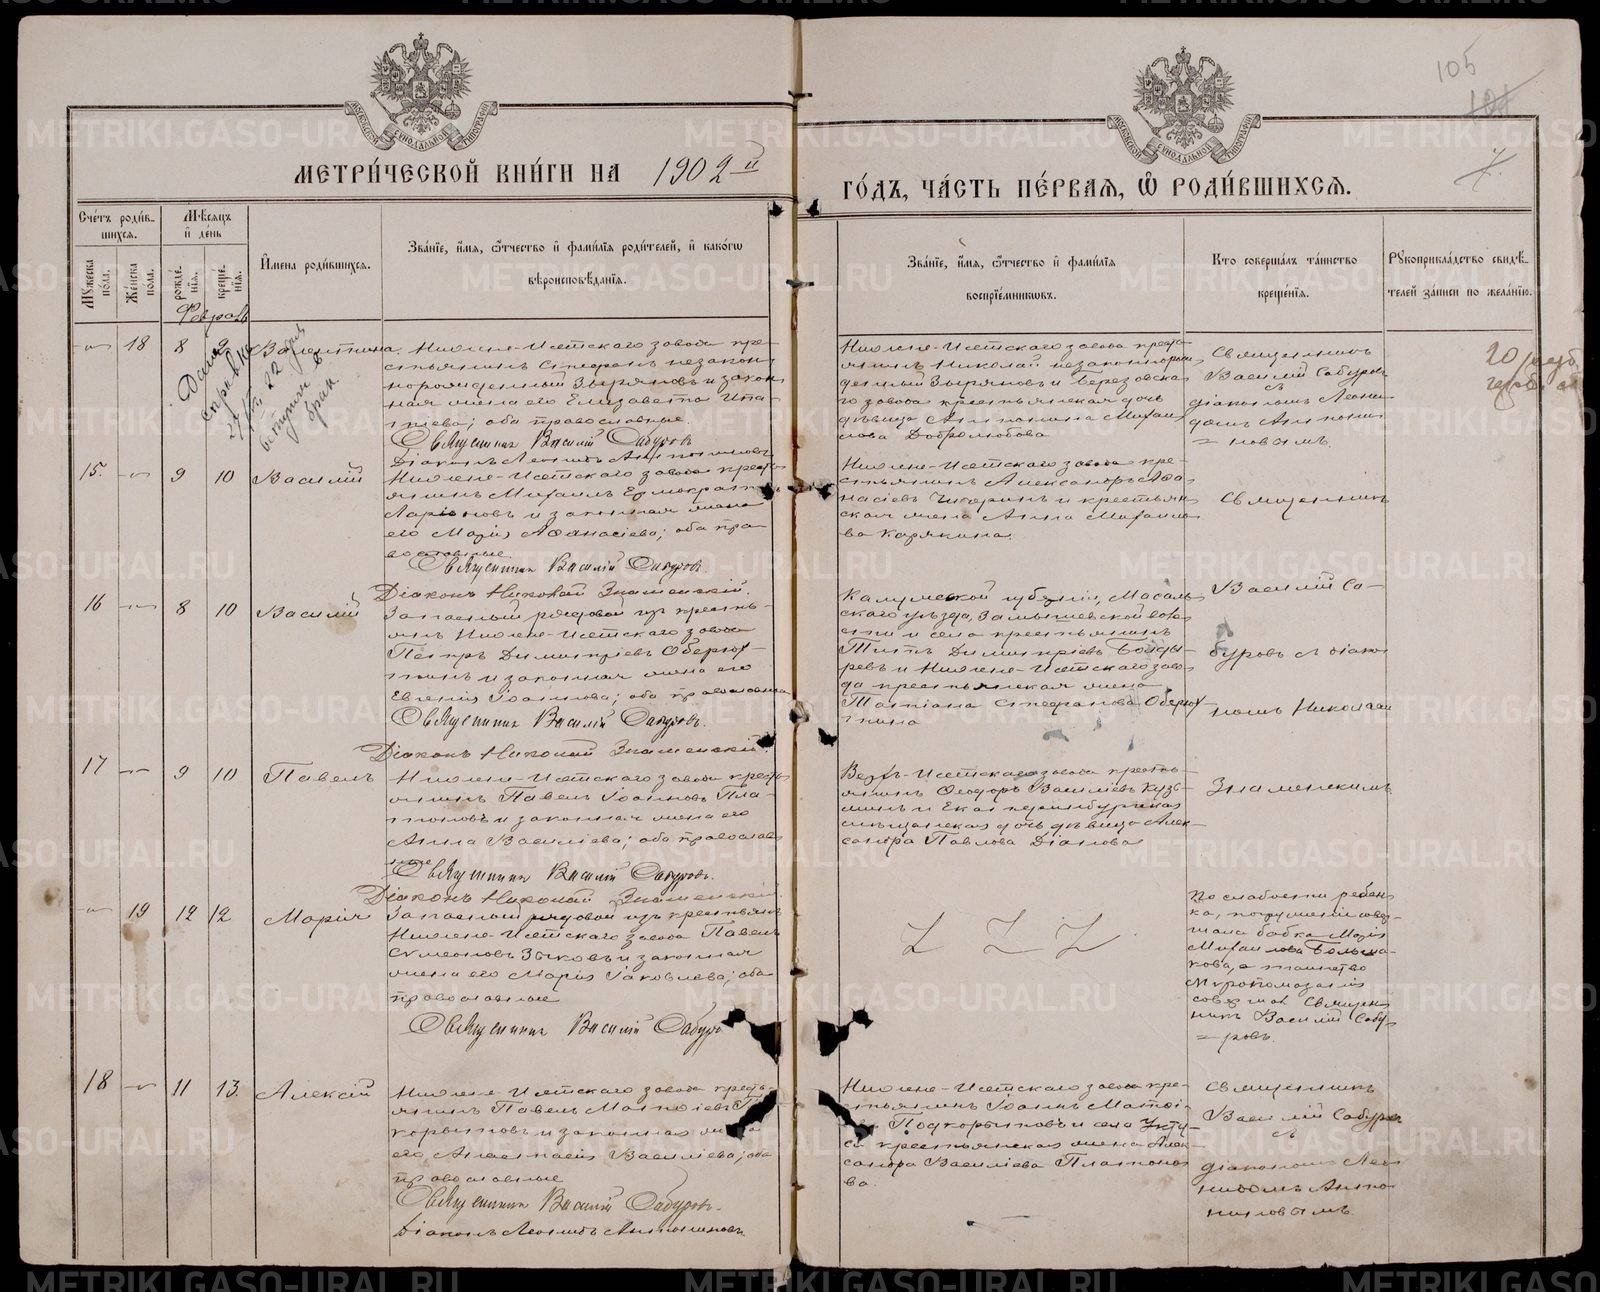 105
101
7.
МЕТРИ́ЧЕСКОЙ КНИ́ГИ НА 1902 й
ГО́ДЪ, ЧА́СТЬ ПЕ́РВАЯ, Ѡ҆ РОДИ́ВШИХСЯ.
Сче́тъ роди́вшихся.
Мꙋ́жеска по́ла.
Же́нска по́ла.
Мѣ́сяцъ и҆ де́нь
рожде́нїя.
креще́нїя.
И҆мена̀ роди́вшихся.
Зва́нїе, и҆́мя, ѻ҆́тчество и҆ фами́лїя роди́телей, и҆ како́гѡ вѣроисповѣ́данїя.
Зва́нїе, и҆́мя, ѻ҆́тчество и҆ фами́лїя воспрїе́мникѡвъ.
Кто̀ соверша́лъ та́инство креще́нїя.
Рꙋкоприкла́дство свидѣ́телей за́писи по жела́нїю.
Февраль
18 8 9 Валентина.
Нижне-Исетскаго завода кре-
стьянинъ Стефанъ незакон-
норожденный Зыряновъ и закон-
ная жена его Елизавета Ипа-
тіева; оба православные.
Священникъ Василій Сабуровъ
Діаконъ Леонидъ Антониновъ
Нижне-Исетскаго завода кресть-
янинъ Николай незаконнорож-
денный Зыряновъ и Березовска-
го завода крестьянская дочь
дѣвица Антонина Михаи-
лова Добролюбова
Священникъ
Василій Сабуровъ
съ
діакономъ Леони-
домъ Антони-
= новымъ.
15. 9 10 Василій
Нижне-Исетскаго завода кресть-
янинъ Михаилъ Ермократовъ
Ларіоновъ и законная жена
его Марія Аѳанасіева; оба пра-
вославные
Священникъ Василій Сабуровъ
Діаконъ Николай Знаменскій.
Нижне-Исетскаго завода кре-
стьянинъ Александръ Аѳа-
насіевъ и крестьян-
ская жена Анна Михаило-
ва Карякина.
Священникъ
16 8 10 Василій
Запасный рядовой изъ крестья-
янъ Нижне-Исетскаго завода
Петръ Димитріевъ Оберюх-
тинъ и законная жена его
Евгенія Іоаннова; оба православные
Священникъ Василій Сабуровъ.
Діаконъ Николай Знаменскій.
Калужской губерніи, Масаль-
скаго уѣзда, воло-
сти и села крестьянинъ
Титъ Димитріевъ Болды-
ревъ и Нижне-Исетскаго заво-
да крестьянская жена
Татіана Стефанова Оберюх-
тина
Василій Са-
буровъ съ діако-
номъ Николаемъ
17 9 10 Павелъ
Нижне-Исетскаго завода кресть-
янинъ Павелъ Іоанновъ Пла-
тоновъ и законная жена его
Анна Василіева; оба православ-
ные
Священникъ Василій Сабуровъ.
Діаконъ Николай Знаменскій
Верхъ-Исетскаго завода кресть-
янинъ Ѳеодоръ Василіевъ Кузь-
минъ и Екатеринбургская
мѣщанская дочь дѣвица Алек-
сандра Павлова Діанова
Знаменскимъ
19 12 12 Марія
Запасный рядовой изъ крестьянъ
Нижне-Исетскаго завода Павелъ
Сумеоновъ Зыковъ и законная
жена его Марія Іаковлева; оба
православные
Священникъ Василій Сабуро
По слабости ребен-
ка, погруженіе совер-
шала бабка Марія
Михаилова Больша-
кова, а таинство
Муропомазанія
соверш. Священ-
никъ Василій Сабу-
= ровъ.
18 11 13. Алексій
Нижне-Исетскаго завода кресть-
янинъ Павелъ Матѳіевъ П
корытовъ и законная жена
его Анастасія Василіева; оба
православные
Священникъ Василій Сабуровъ.
Діаконъ Леонидъ Антониновъ.
Нижне-Исетскаго завода кре-
стьянинъ Іоаннъ Матѳі-
Подкорытовъ и села Укту-
са крестьянская жена Алек-
сандра Василіева Платоно-
ва.
Священникъ
Василій Сабуровъ
съ
діакономъ Лео-
нидомъ Анто-
ниновымъ.
METRIKI.GASO-URAL.RU